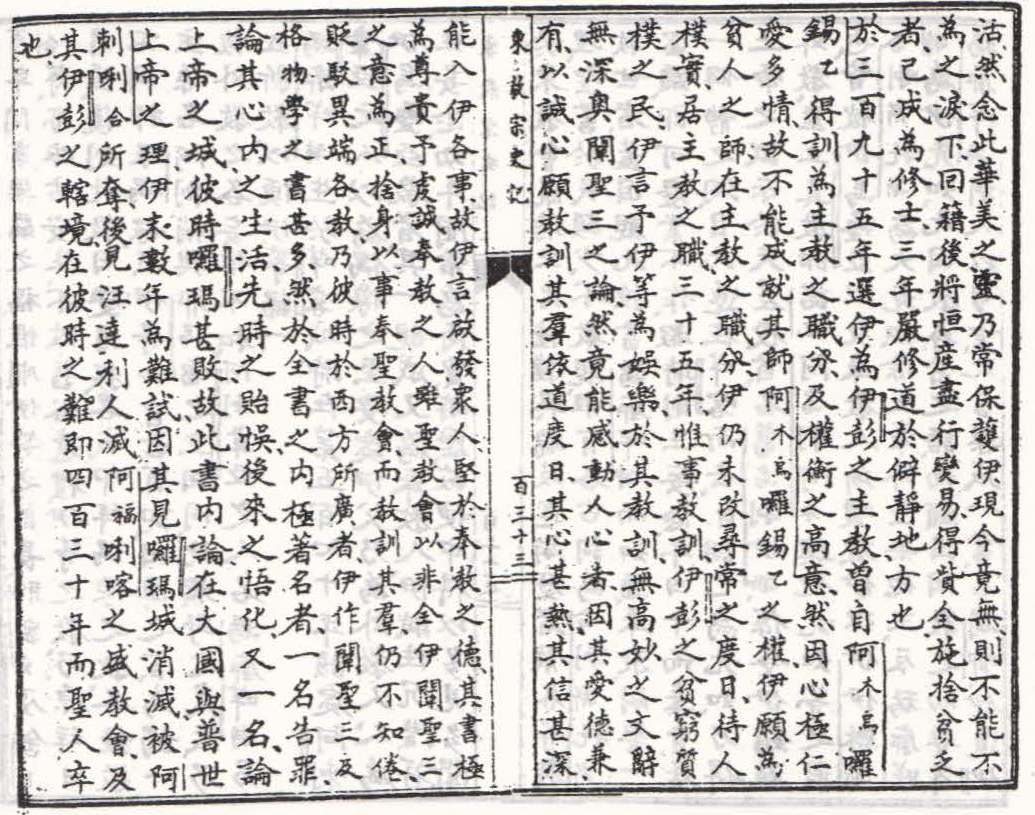 沽然念此華美之靈乃常保護伊現今竟無則不能不
為之淚下回籍後將恒産盡行變易得貲全施捨貧乏
者己成為修士三年嚴修道於僻靜地方也
於三百九十五年選伊為伊彭之主教曾自阿木烏囉
錫乙得訓為主教之職分及權衡之高意然因心極仁
愛多情故不能成就其師阿木烏囉錫乙之權伊願為
貧人之師在主教之職分伊仍未改尋常之度日待人
樸實居主教之職三十五年惟事教訓伊彭之貧窮質
樸之民伊言予伊等為娛樂於其教訓無高妙之文辭
無深奧闡聖三之論然竟能感動人心者因其愛德兼
有以誠心願教訓其羣依道度日其心甚熱其信甚深
東教宗史記
百三十三
能入伊各事故伊言啟發眾人堅於奉教之德其書極
為尊貴予虔誠奉教之人雖聖教會以非全伊闡聖三
之意為正捨身以事奉聖教會而教訓其羣仍不知倦
貶駁異端各教乃彼時於西方所廣者伊作闡聖三及
格物學之書甚多然於全書之内極著名者一名告罪
論其心内之生活先時之貽悞後來之悟化又一名論
上帝之城彼時囉瑪甚敗故此書内論在大國與普世
上帝之理伊末數年為難試因其見囉瑪城消滅被阿
剌唎合所奪後見汪達利人滅阿福唎喀之盛教會及
其伊彭之轄境在彼時之難即四百三十年而聖人卒
也